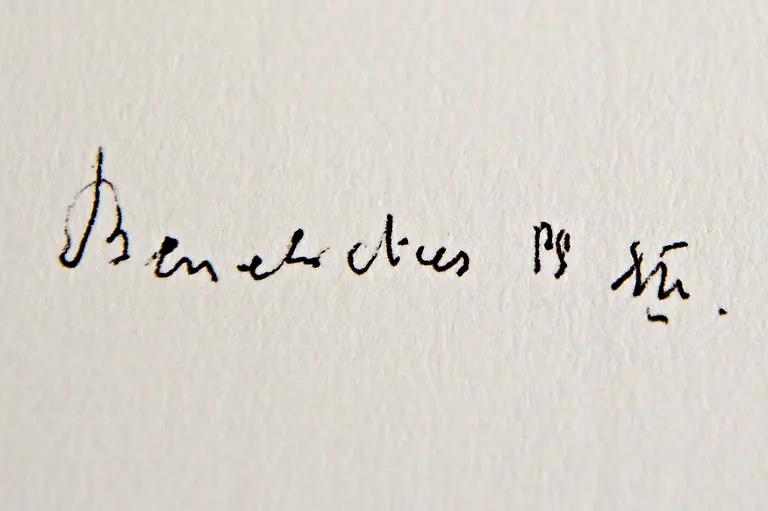 Benedictus PP XVI.